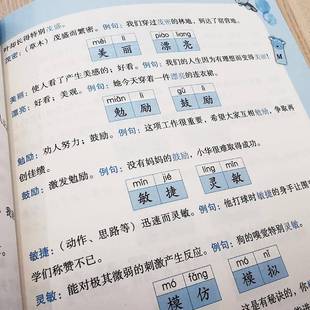 种却长得特别茂盛。
茂密：（草木）茂盛而繁密。例句：我们穿过茂密的林地，到达了宿营地。
měi lì piào liang
美丽 漂亮
美丽：使人看了产生美感的；好看。例句：我们的人生因为有理想而变得美丽！
漂亮：好看；美观。例句：她今天穿着一件漂亮的连衣裙。
miǎn lì gǔ lì
勉励 鼓励
勉励：劝人努力；鼓励。例句：这项工作很重要，希望大家互相勉励，争取再
创佳绩。
鼓励：激发勉励。例句：没有妈妈的鼓励，小华很难取得成功。
mǐn jié líng mǐn
敏捷 灵敏
敏捷：（动作、思路等）迅速而灵敏。例句：他打球时敏捷的身手让围
学们称赞不已。
灵敏：能对极其微弱的刺激产生反应。例句：狗的嗅觉特别灵敏。
mó fǎng mó nǐ
模仿 模拟
这是有秘诀的，你